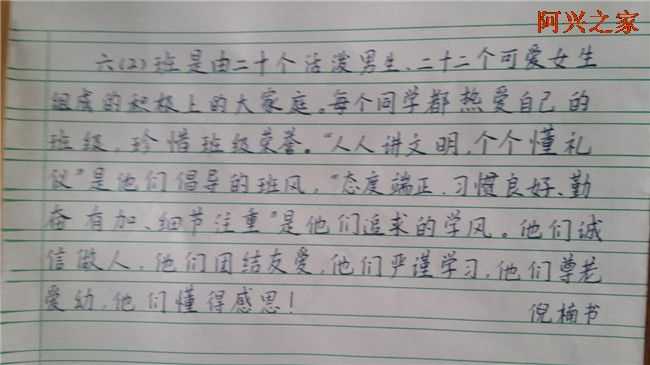 阿兴之家
六(2)班是由二十个活泼男生、二十二个可爱女生
组成的积极上的大家庭。每个同学都热爱自己的
班级，珍惜班级荣誉。“人人讲文明，个个懂礼
仪”是他们倡导的班风，“态度端正、习惯良好、勤
奋有加、细节注重”是他们追求的学风。他们诚
信做人，他们团结友爱，他们严谨学习，他们尊老
爱幼，他们懂得感恩！
倪楠书